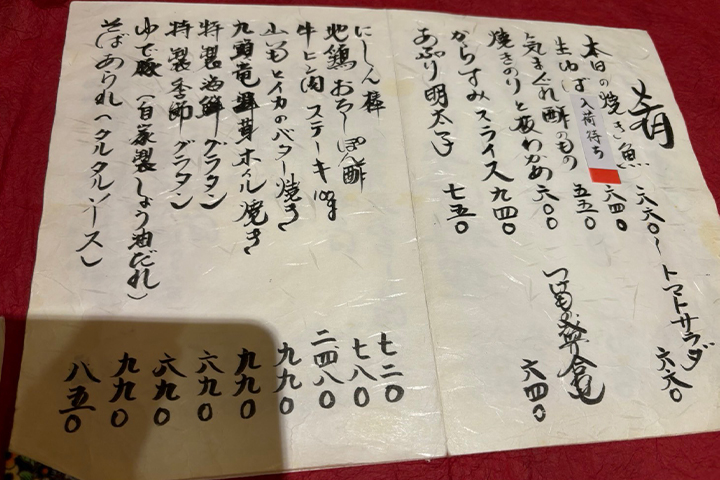 肴
本日の焼き魚 六六〇〜
生ゆば 入荷待ち 六四〇
気まぐれ酢のもの 五五〇
焼きのりと板わかめ 六〇〇
からすみスライス 九四〇
あぶり明太子 七五〇
トマトサラダ 六六〇
つけもの盛合せ 六四〇
にしん棒 七二〇
地鶏おろしぽん酢 七八〇
牛ヒレ肉ステーキ 100g 二四八〇
山いもとイカのバター焼き 九九〇
九頭竜舞茸ホイル焼き 九九〇
特製海鮮グラタン 六九〇
特製季節グラタン 六九〇
ゆで豚(自家製しょう油だれ) 九九〇
そばあられ(タルタルソース) 八五〇